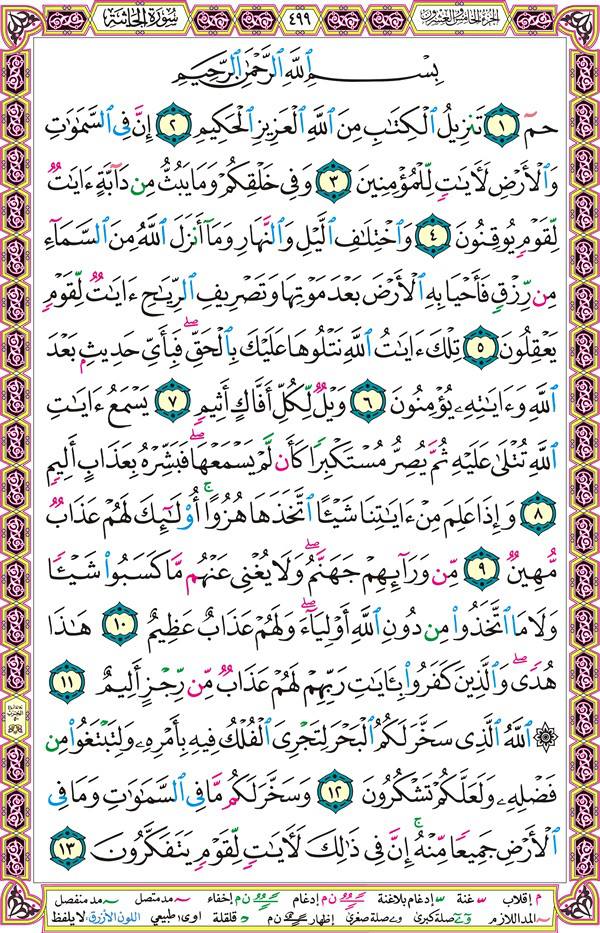 سُورَةُ الجَاثِيَةِ
٤٩٩
الجزء الخامس والعشرون
بِسْمِ ٱللَّهِ ٱلرَّحْمَٰنِ ٱلرَّحِيمِ
حمٓ ١ تَنزِيلُ ٱلْكِتَٰبِ مِنَ ٱللَّهِ ٱلْعَزِيزِ ٱلْحَكِيمِ ٢ إِنَّ فِى ٱلسَّمَٰوَٰتِ
وَٱلْأَرْضِ لَءَايَٰتٍ لِّلْمُؤْمِنِينَ ٣ وَفِى خَلْقِكُمْ وَمَا يَبُثُّ مِن دَآبَّةٍ ءَايَٰتٌ
لِّقَوْمٍ يُوقِنُونَ ٤ وَٱخْتِلَٰفِ ٱلَّيْلِ وَٱلنَّهَارِ وَمَآ أَنزَلَ ٱللَّهُ مِنَ ٱلسَّمَآءِ
مِن رِّزْقٍ فَأَحْيَا بِهِ ٱلْأَرْضَ بَعْدَ مَوْتِهَا وَتَصْرِيفِ ٱلرِّيَٰحِ ءَايَٰتٌ لِّقَوْمٍ
يَعْقِلُونَ ٥ تِلْكَ ءَايَٰتُ ٱللَّهِ نَتْلُوهَا عَلَيْكَ بِٱلْحَقِّ ۖ فَبِأَىِّ حَدِيثٍۭ بَعْدَ
ٱللَّهِ وَءَايَٰتِهِۦ يُؤْمِنُونَ ٦ وَيْلٌ لِّكُلِّ أَفَّاكٍ أَثِيمٍ ٧ يَسْمَعُ ءَايَٰتِ
ٱللَّهِ تُتْلَىٰ عَلَيْهِ ثُمَّ يُصِرُّ مُسْتَكْبِرًا كَأَن لَّمْ يَسْمَعْهَا ۖ فَبَشِّرْهُ بِعَذَابٍ أَلِيمٍ
٨ وَإِذَا عَلِمَ مِنْ ءَايَٰتِنَا شَيْـًٔا ٱتَّخَذَهَا هُزُوًا ۚ أُو۟لَٰٓئِكَ لَهُمْ عَذَابٌ
مُّهِينٌ ٩ مِّن وَرَآئِهِمْ جَهَنَّمُ ۖ وَلَا يُغْنِى عَنْهُم مَّا كَسَبُوا۟ شَيْـًٔا
وَلَا مَا ٱتَّخَذُوا۟ مِن دُونِ ٱللَّهِ أَوْلِيَآءَ ۖ وَلَهُمْ عَذَابٌ عَظِيمٌ ١٠ هَٰذَا
هُدًى ۖ وَٱلَّذِينَ كَفَرُوا۟ بِـَٔايَٰتِ رَبِّهِمْ لَهُمْ عَذَابٌ مِّن رِّجْزٍ أَلِيمٌ ١١
۞ ٱللَّهُ ٱلَّذِى سَخَّرَ لَكُمُ ٱلْبَحْرَ لِتَجْرِىَ ٱلْفُلْكُ فِيهِ بِأَمْرِهِۦ وَلِتَبْتَغُوا۟ مِن
فَضْلِهِۦ وَلَعَلَّكُمْ تَشْكُرُونَ ١٢ وَسَخَّرَ لَكُم مَّا فِى ٱلسَّمَٰوَٰتِ وَمَا فِى
ٱلْأَرْضِ جَمِيعًا مِّنْهُ ۚ إِنَّ فِى ذَٰلِكَ لَءَايَٰتٍ لِّقَوْمٍ يَتَفَكَّرُونَ ١٣
م إقلاب غنة إدغام بلاغنة ن م إدغام ن م إخفاء مد متصل مد منفصل
المد اللازم صلة كبرى صلة صغرى إظهار ن م قلقلة اوى طبيعي اللون الأزرق لا يلفظ